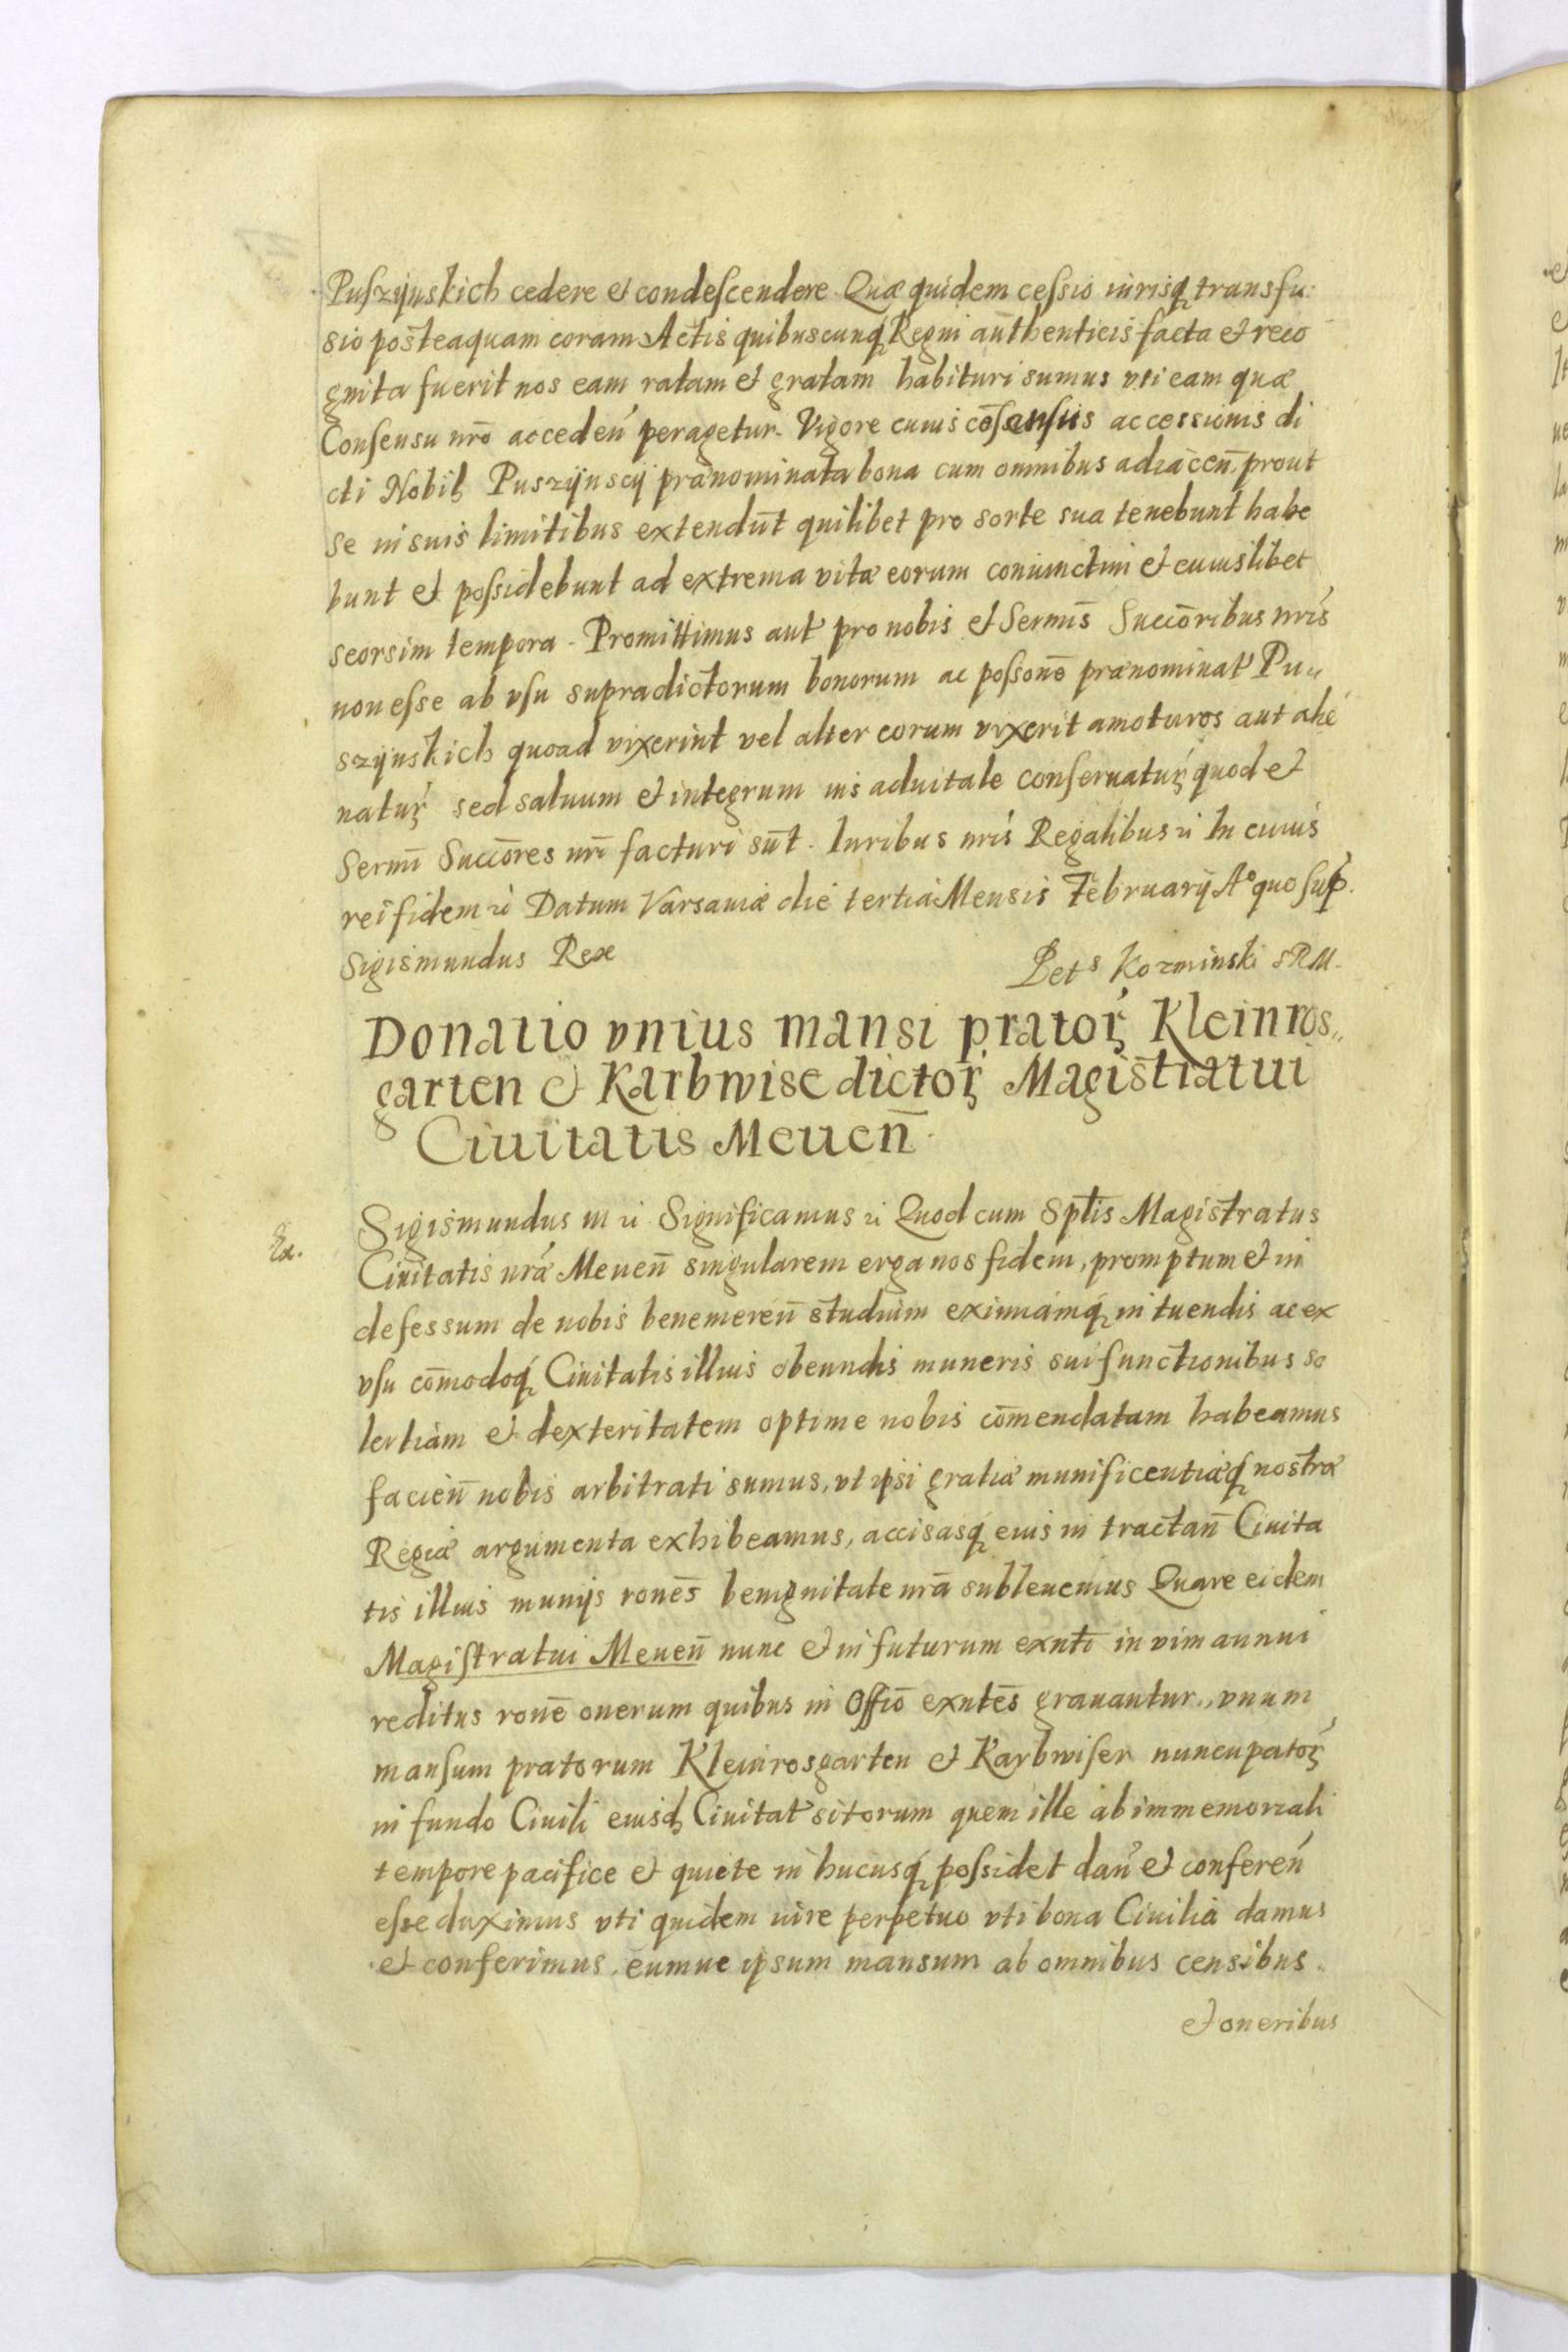 Puszÿnskich cedere et condescendere. Quæ quidem cessio iurisq́ transfu:
sio posteaquam coram Actis quibuscunq́ Regni authenticis facta et reco
gnita fuerit nos eam ratam et gratam habituri sumus uti eam quæ
Consensu nrō acceden̄ peragetur. Vigore cuius cōsensus accessionis di
cti Nobiles Puszÿnscÿ prænominata bona cum omnibus adiacen̄ prout
se in suis limitibus extendūt quilibet pro sorte sua tenebunt habe
bunt et possidebunt ad extrema vitæ eorum coniunctim et cuiuslibet
seorsim tempora. Promittimus aut̄ pro nobis et Sermīs Succōribus nrīs
non esse ab usu supradictorum bonorum ac possonē prænominat̄ Pu„
szÿnskich quoad vixerint vel alter eorum vixerit amoturos aut alie
natuꝝ sed saluum et integrum ius aduitale conseruatuꝝ quod et
Sermī Succōres nrī facturi sūt. Iuribus nrīs Regalibus ꝛc̄ In cuius
rei fidem ꝛc̄ Datum Varsauiæ die tertia Mensis Februarÿ Aº quo sup̄.
Sigismundus Rex Petˢ Kozminski SRM.
Donatio vnius mansi pratoꝝ Kleinros„
garten et Karbwise dictoꝝ Magistratui
Ciuitatis Meuen̄.
Ex.
Sigismundus III ꝛc̄ Significamus ꝛc̄ Quod cum Sptīs Magistratus
Ciuitatis nrǣ Meuen̄ singularem erga nos fidem, promptum et in
defessum de nobis benemeren̄ studium eximiamq́ in tuendis ac ex
vsu cōmodoq́ Ciuitatis illius obeundis muneris sui functionibus so
lertiam et dexteritatem optime nobis cōmendatam habeamus
facien̄ nobis arbitrati sumus, vt ipsi gratiæ munificentiæq́ nostræ
Regiæ argumenta exhibeamus, accisasq́ eius in tractan̄ Ciuita
tis illius munÿs ronēs benignitate nrā subleuemus Quare eidem
Magistratui Meuen̄ nunc et in futurum exntī in vim annui
reditus ronē onerum quibus in Offīo exntēs grauantur, vnum
mansum pratorum Kleinrosgarten et Karbwiser nuncupatoꝝ
in fundo Ciuili eiusd̄ Ciuitat̄ sitorum quem ille ab immemoriali
tempore pacifice et quiete in hucusq́ possidet dan̄ et conferen̄
esse duximus vti quidem iure perpetuo vti bona Ciuilia damus
et conferimus, eumue ipsum mansum ab omnibus censibus
et oneribus